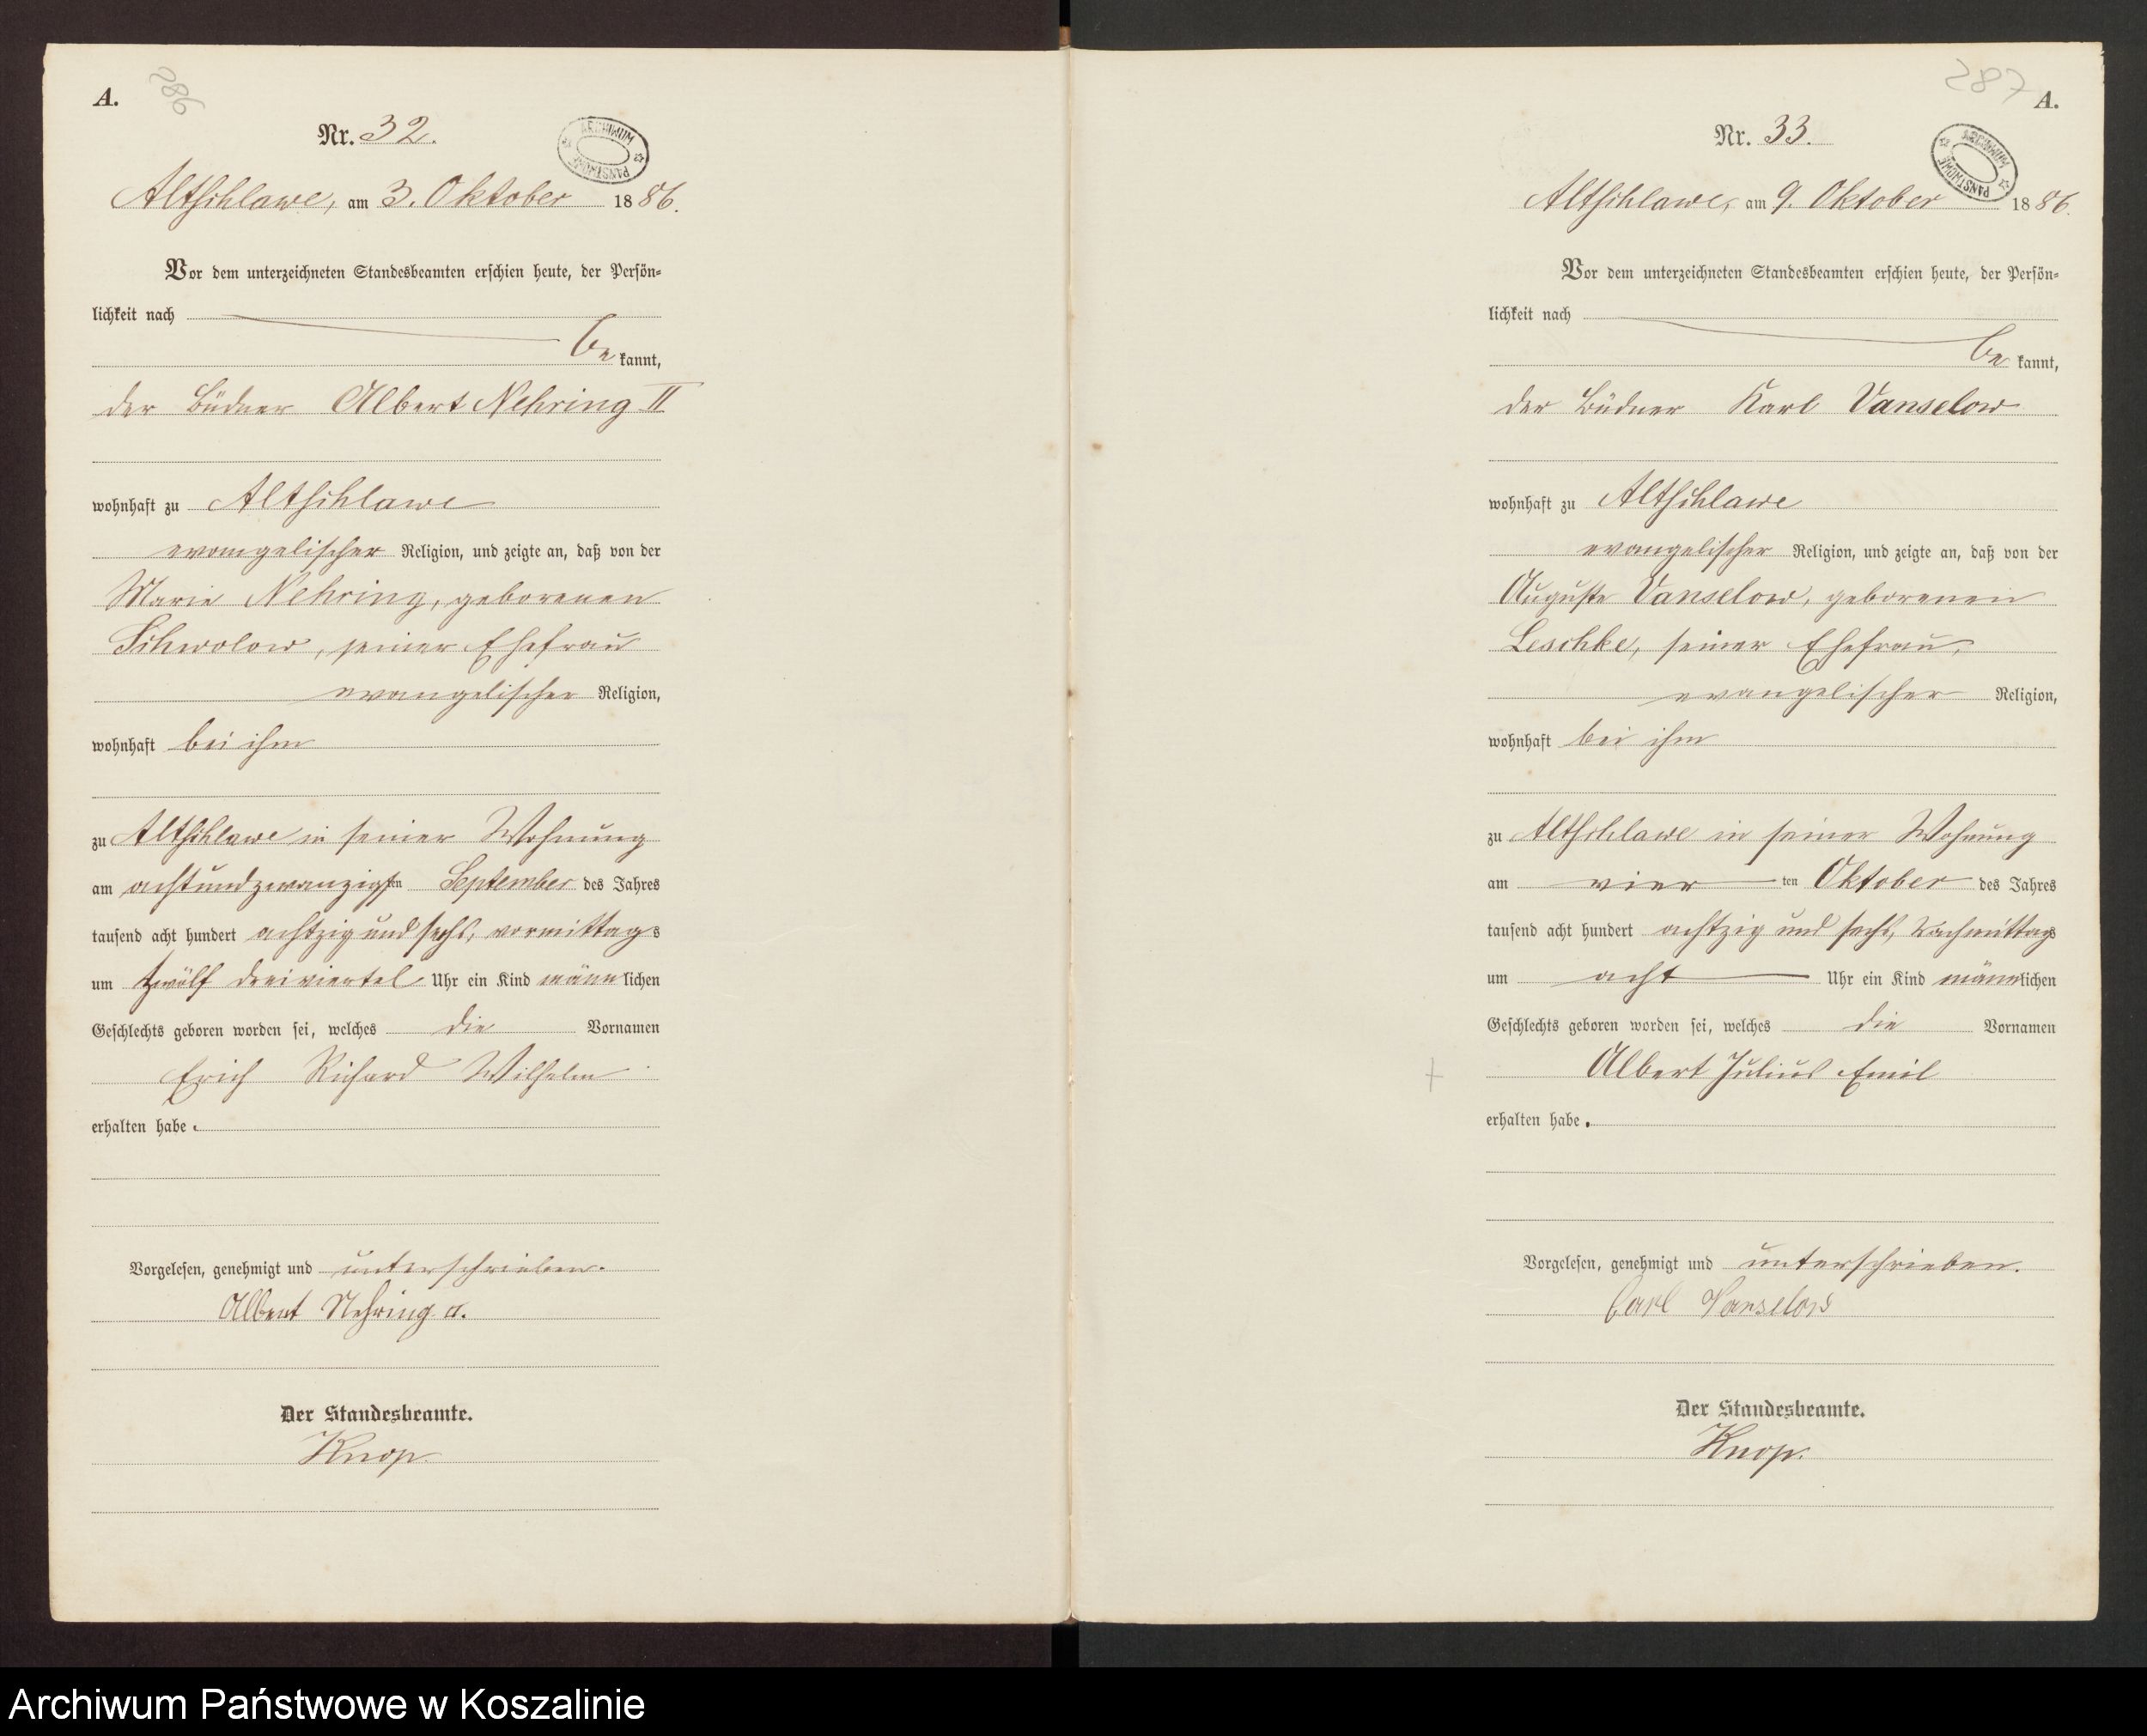 A.
286
Nr. 32.
ARCHIWUM PAŃSTWOWE
Altschlawe, am 3. Oktober 1886.
Vor dem unterzeichneten Standesbeamten erschien heute, der Persön-
lichkeit nach
be kannt,
der Büdner Albert Nehring II
wohnhaft zu Altschlawe
evangelischer Religion, und zeigte an, daß von der
Marie Nehring, geborenen
Schwolow, seiner Ehefrau
evangelischer Religion,
wohnhaft bei ihm
zu Altschlawe in seiner Wohnung
am achtundzwanzigsten September des Jahres
tausend acht hundert achtzig und sechs, vormittags
um zwölf dreiviertel Uhr ein Kind männlichen
Geschlechts geboren worden sei, welches die Vornamen
Erich Richard Wilhelm
erhalten habe.
Vorgelesen, genehmigt und unterschrieben.
Albert Nehring II.
Der Standesbeamte.
Knop.
287
A.
Nr. 33.
ARCHIWUM PAŃSTWOWE
Altschlawe, am 9. Oktober 1886.
Vor dem unterzeichneten Standesbeamten erschien heute, der Persön-
lichkeit nach
be kannt,
der Büdner Karl Vanselow
wohnhaft zu Altschlawe
evangelischer Religion, und zeigte an, daß von der
Auguste Vanselow, geborenen
Leschke, seiner Ehefrau,
evangelischer Religion,
wohnhaft bei ihm
zu Altschlawe in seiner Wohnung
am vier ten Oktober des Jahres
tausend acht hundert achtzig und sechs, Nachmittags
um acht Uhr ein Kind männlichen
Geschlechts geboren worden sei, welches die Vornamen
Albert Julius Emil
erhalten habe.
Vorgelesen, genehmigt und unterschrieben.
Carl Vanselow
Der Standesbeamte.
Knop.
Archiwum Państwowe w Koszalinie